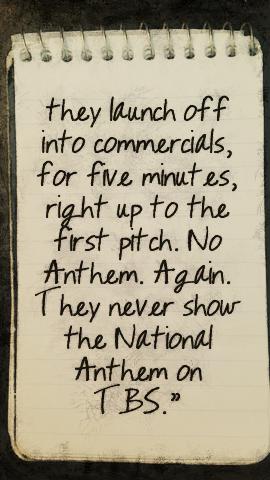 they launch off
into commercials,
for five minutes,
right up to the
first pitch. No
Anthem. Again.
They never show
the National
Anthem on
TBS.”